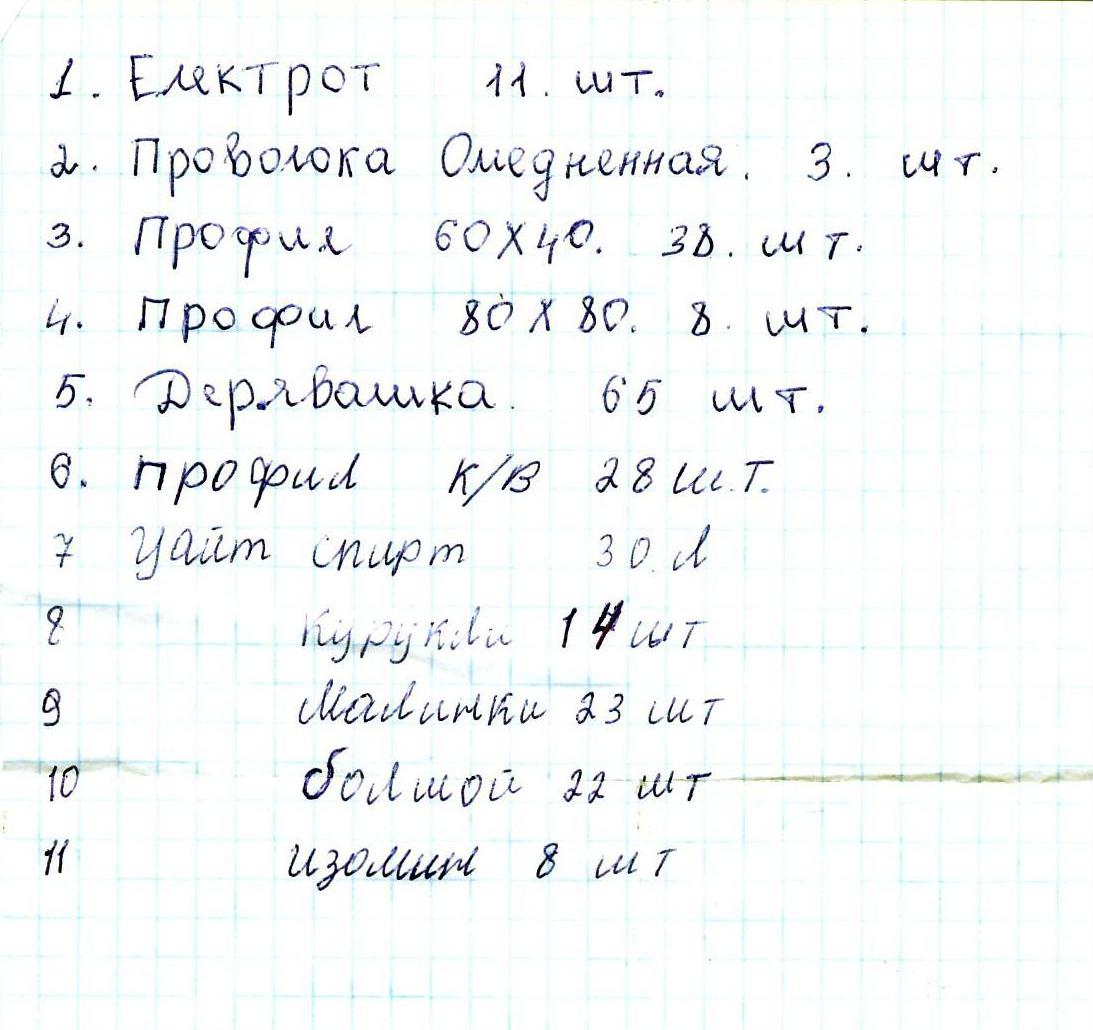 1. Електрот 11. шт.
2. Проволока Омедненная. 3. шт.
3. Профил 60X40. 38. шт.
4. Профил 80X80. 8. шт.
5. Дерявашка. 65 шт.
6. профил К/В 28 шт.
7 Уайт спирт 30 Л
8 Курукли 14 шт
9 Малинки 23 шт
10 болшой 22 шт
11 изомин 8 шт